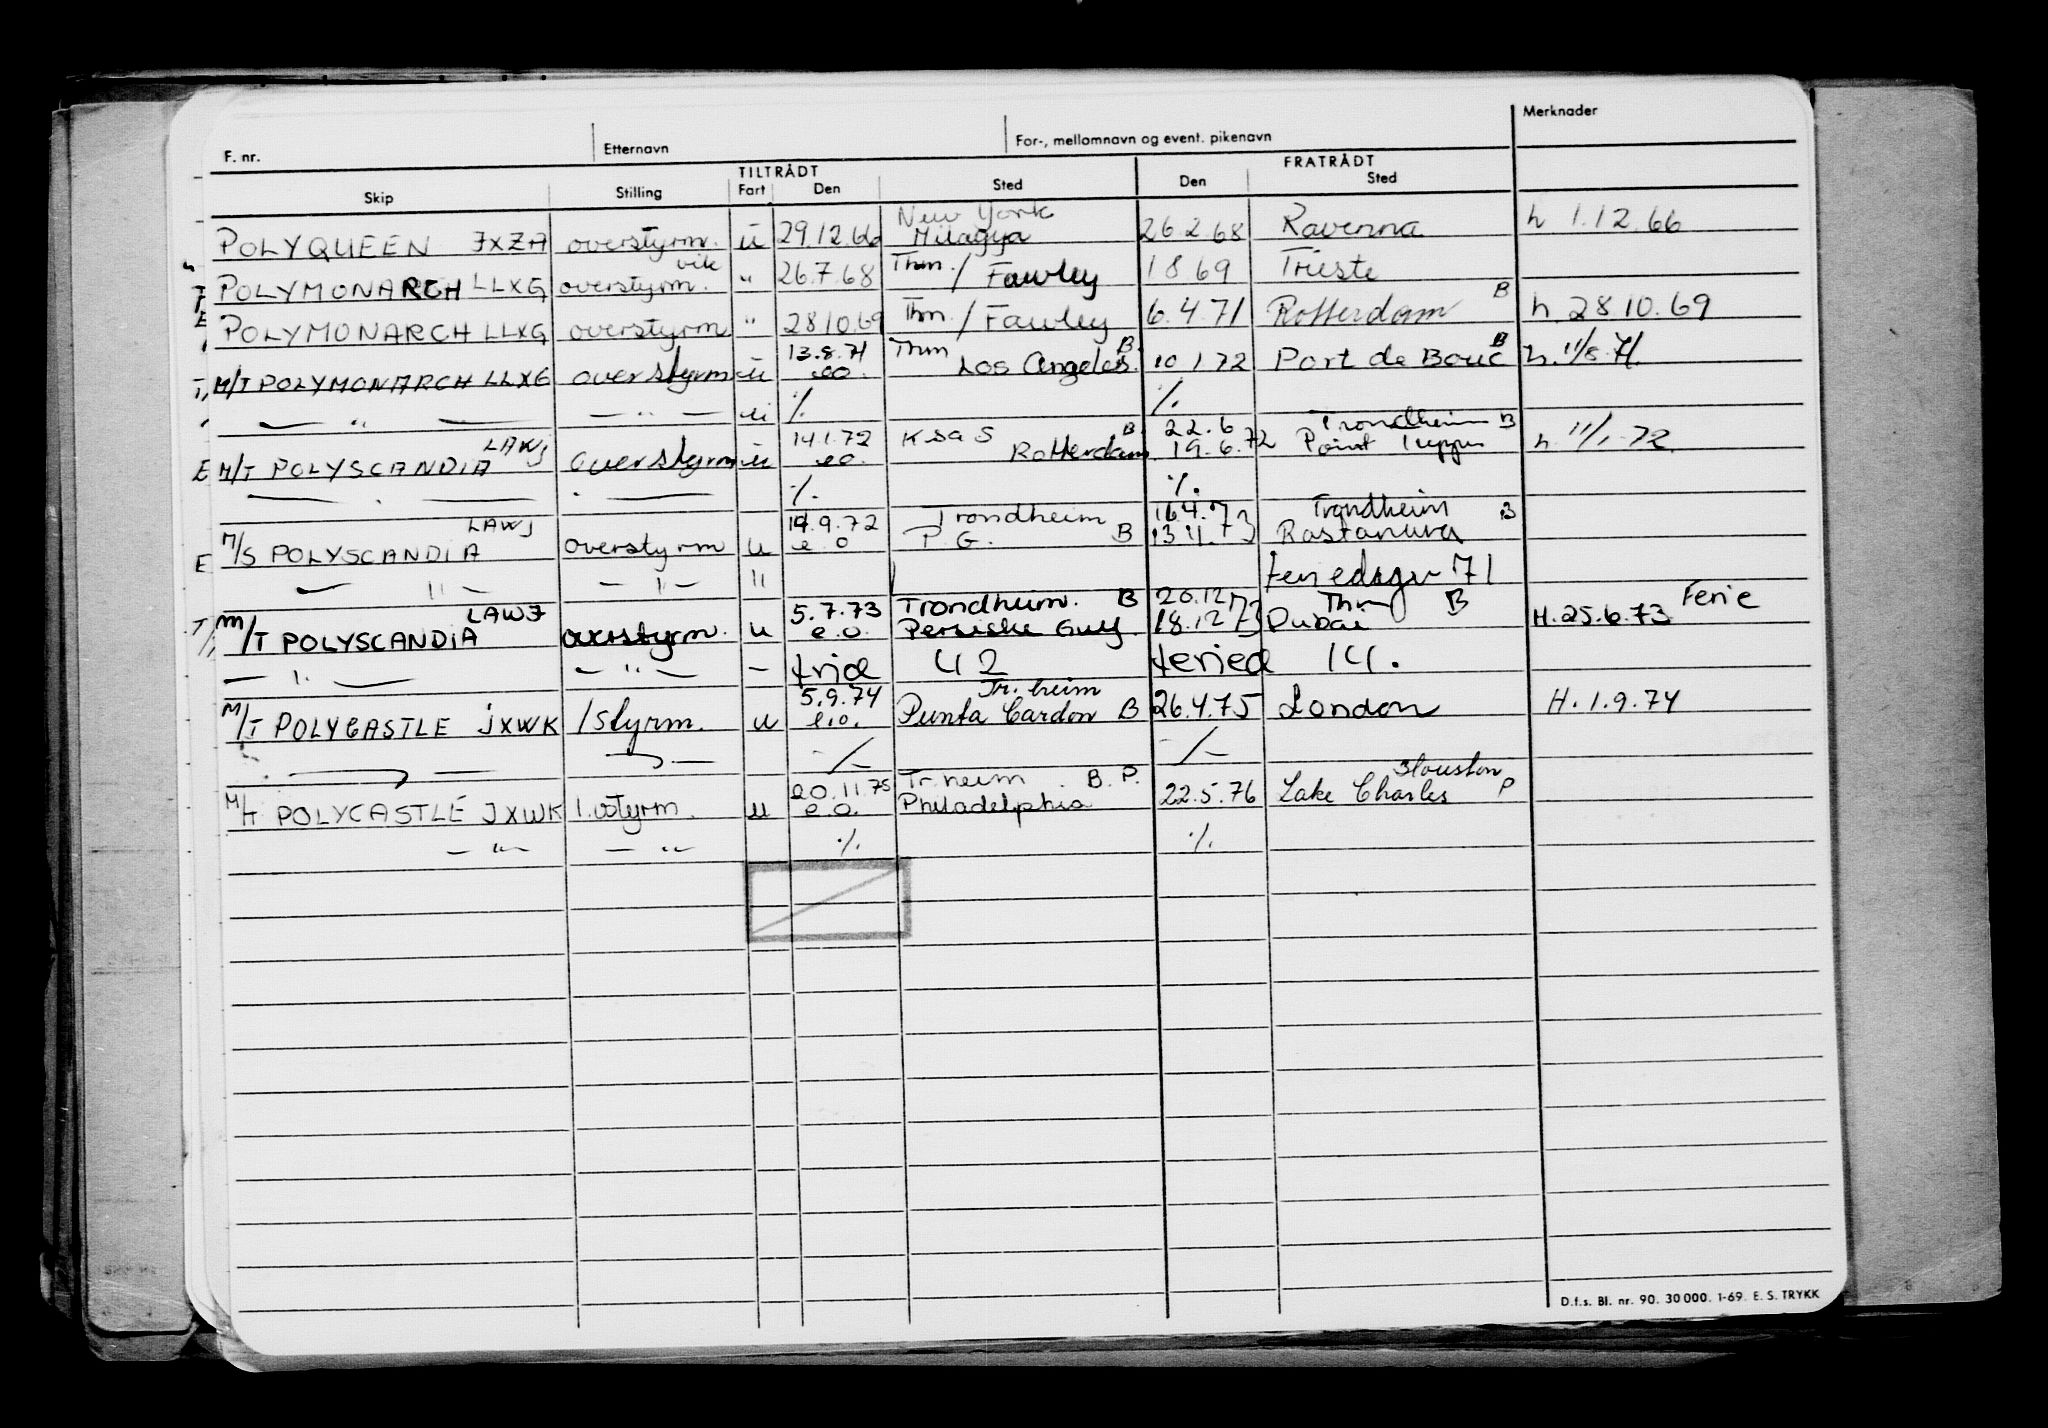 F. nr. Etternavn For-, mellomnavn og event. pikenavn Merknader
TILTRÅDT FRATRÅDT
Skip Stilling Fart Den Sted Den Sted
New York
POLYQUEEN JXZA overstyrm. u 29.12.66 Milagya 26.2.68 Ravenna h 1.12.66
vik
POLYMONARCH LLXG overstyrm. " 26.7.68 Thm. / Fawley 1 8 69 Trieste
POLYMONARCH LLXG overstyrm " 28.10.69 Thm. / Fawley 6.4.71 Rotterdam B h. 28.10.69
13.8.71 Thm B B
T, M/T POLYMONARCH LLXG overstyrm u eo. Los Angeles. 10 1 72 Port de Bouc h. 11/8.71.
— " — — " — u ./. ./.
LAWJ 14.1.72 KSaS B. 22.6 Trondheim B
E M/T POLYSCANDIA overstyrm u eo. Rotterdam 19.6.72 Point Tupper h 11/1-72
./. ./.
LAWJ 19.9.72 Trondheim 16.4.73 Trondheim B
E M/S POLYSCANDIA overstyrm u e.o P.G. B 13.4.73 Rastanura
— " — — " — " feriedager 71
LAWJ 5.7.73 Trondheim. B 20.12 Thm B Ferie
T/, M/T POLYSCANDIA overstyrm. u e.o. Persiske Gulf. 18.12 73 Dubai H.25.6.73
— " — — " — — frid 42 feried 14.
5.9.74 Tr.heim
M/T POLYCASTLE JXWK 1styrm. u e.o. Punta Cardon B 26.4.75 London H. 1.9.74
-/- -/-
20.11.75 Tr.heim B.P. Houston
M/T POLYCASTLE JXWK 1.styrm. u e.o. Philadelphia 22.5.76 Lake Charles P
— " — — " — ./. ./.
D.f.s. Bl. nr. 90. 30 000. 1-69. E. S. TRYKK